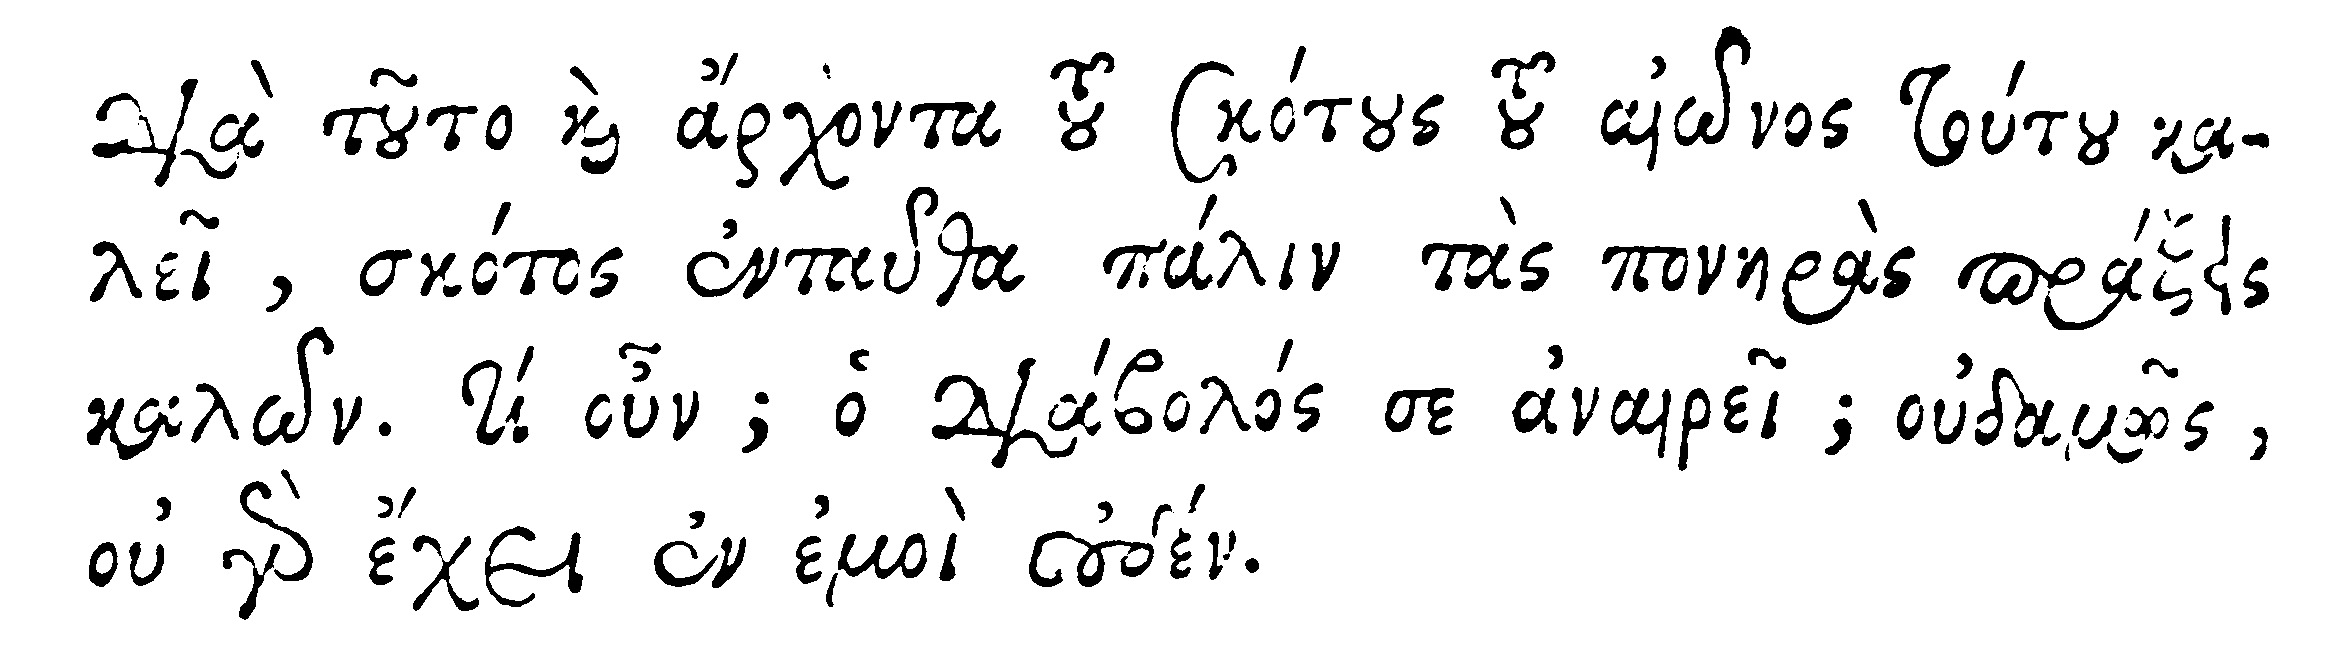 Διὰ τοῦτο καὶ ἄρχοντα τοῦ σκότους τοῦ αἰῶνος τούτου κα-
λεῖ, σκότος ἐνταῦθα πάλιν τὰς πονηρὰς πράξεις
καλῶν. τί οὖν; ὁ διάβολός σε ἀναιρεῖ; οὐδαμῶς,
οὐ γὰρ ἔχει ἐν ἐμοὶ οὐδέν.